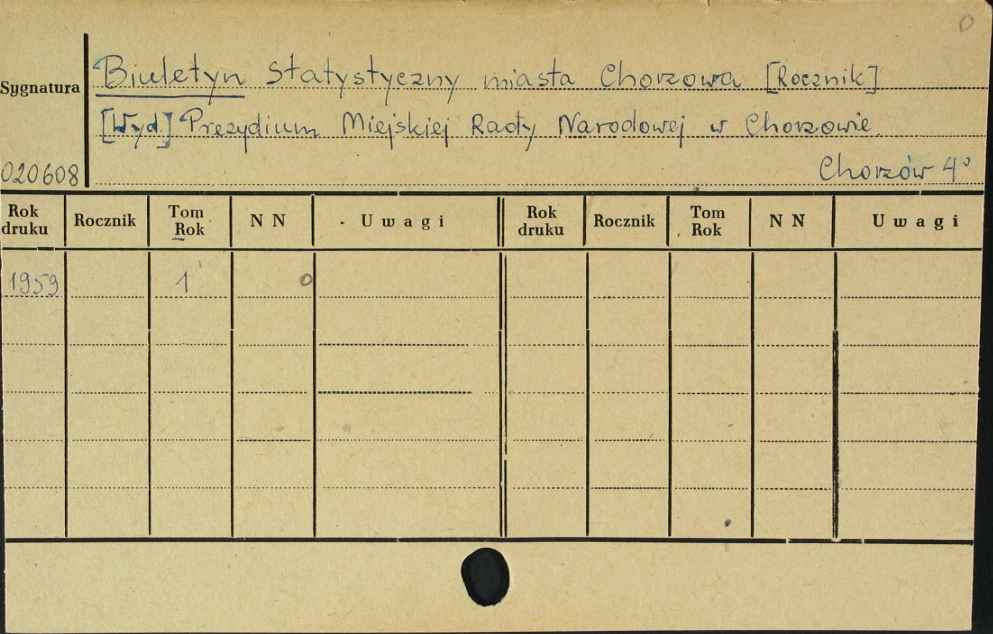 0
Biuletyn statystyczny miasta Chorzowa [Rocznik]
Sygnatura
[Wyd.] Prezydium Miejskiej Rady Narodowej w Chorzowie
020608
Chorzów 4°
Rok druku Rocznik Tom Rok N N U w a g i Rok druku Rocznik Tom Rok N N U w a g i
1959 1 0